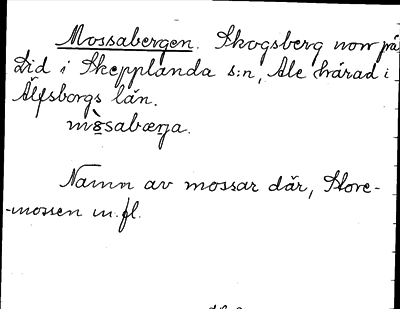 Mossabergen. Skogsberg norr på
Lid i Skepplanda s:n, Ale härad i
Älfsborgs län.
Namn av mossar där, Store-
-mossen m.fl.